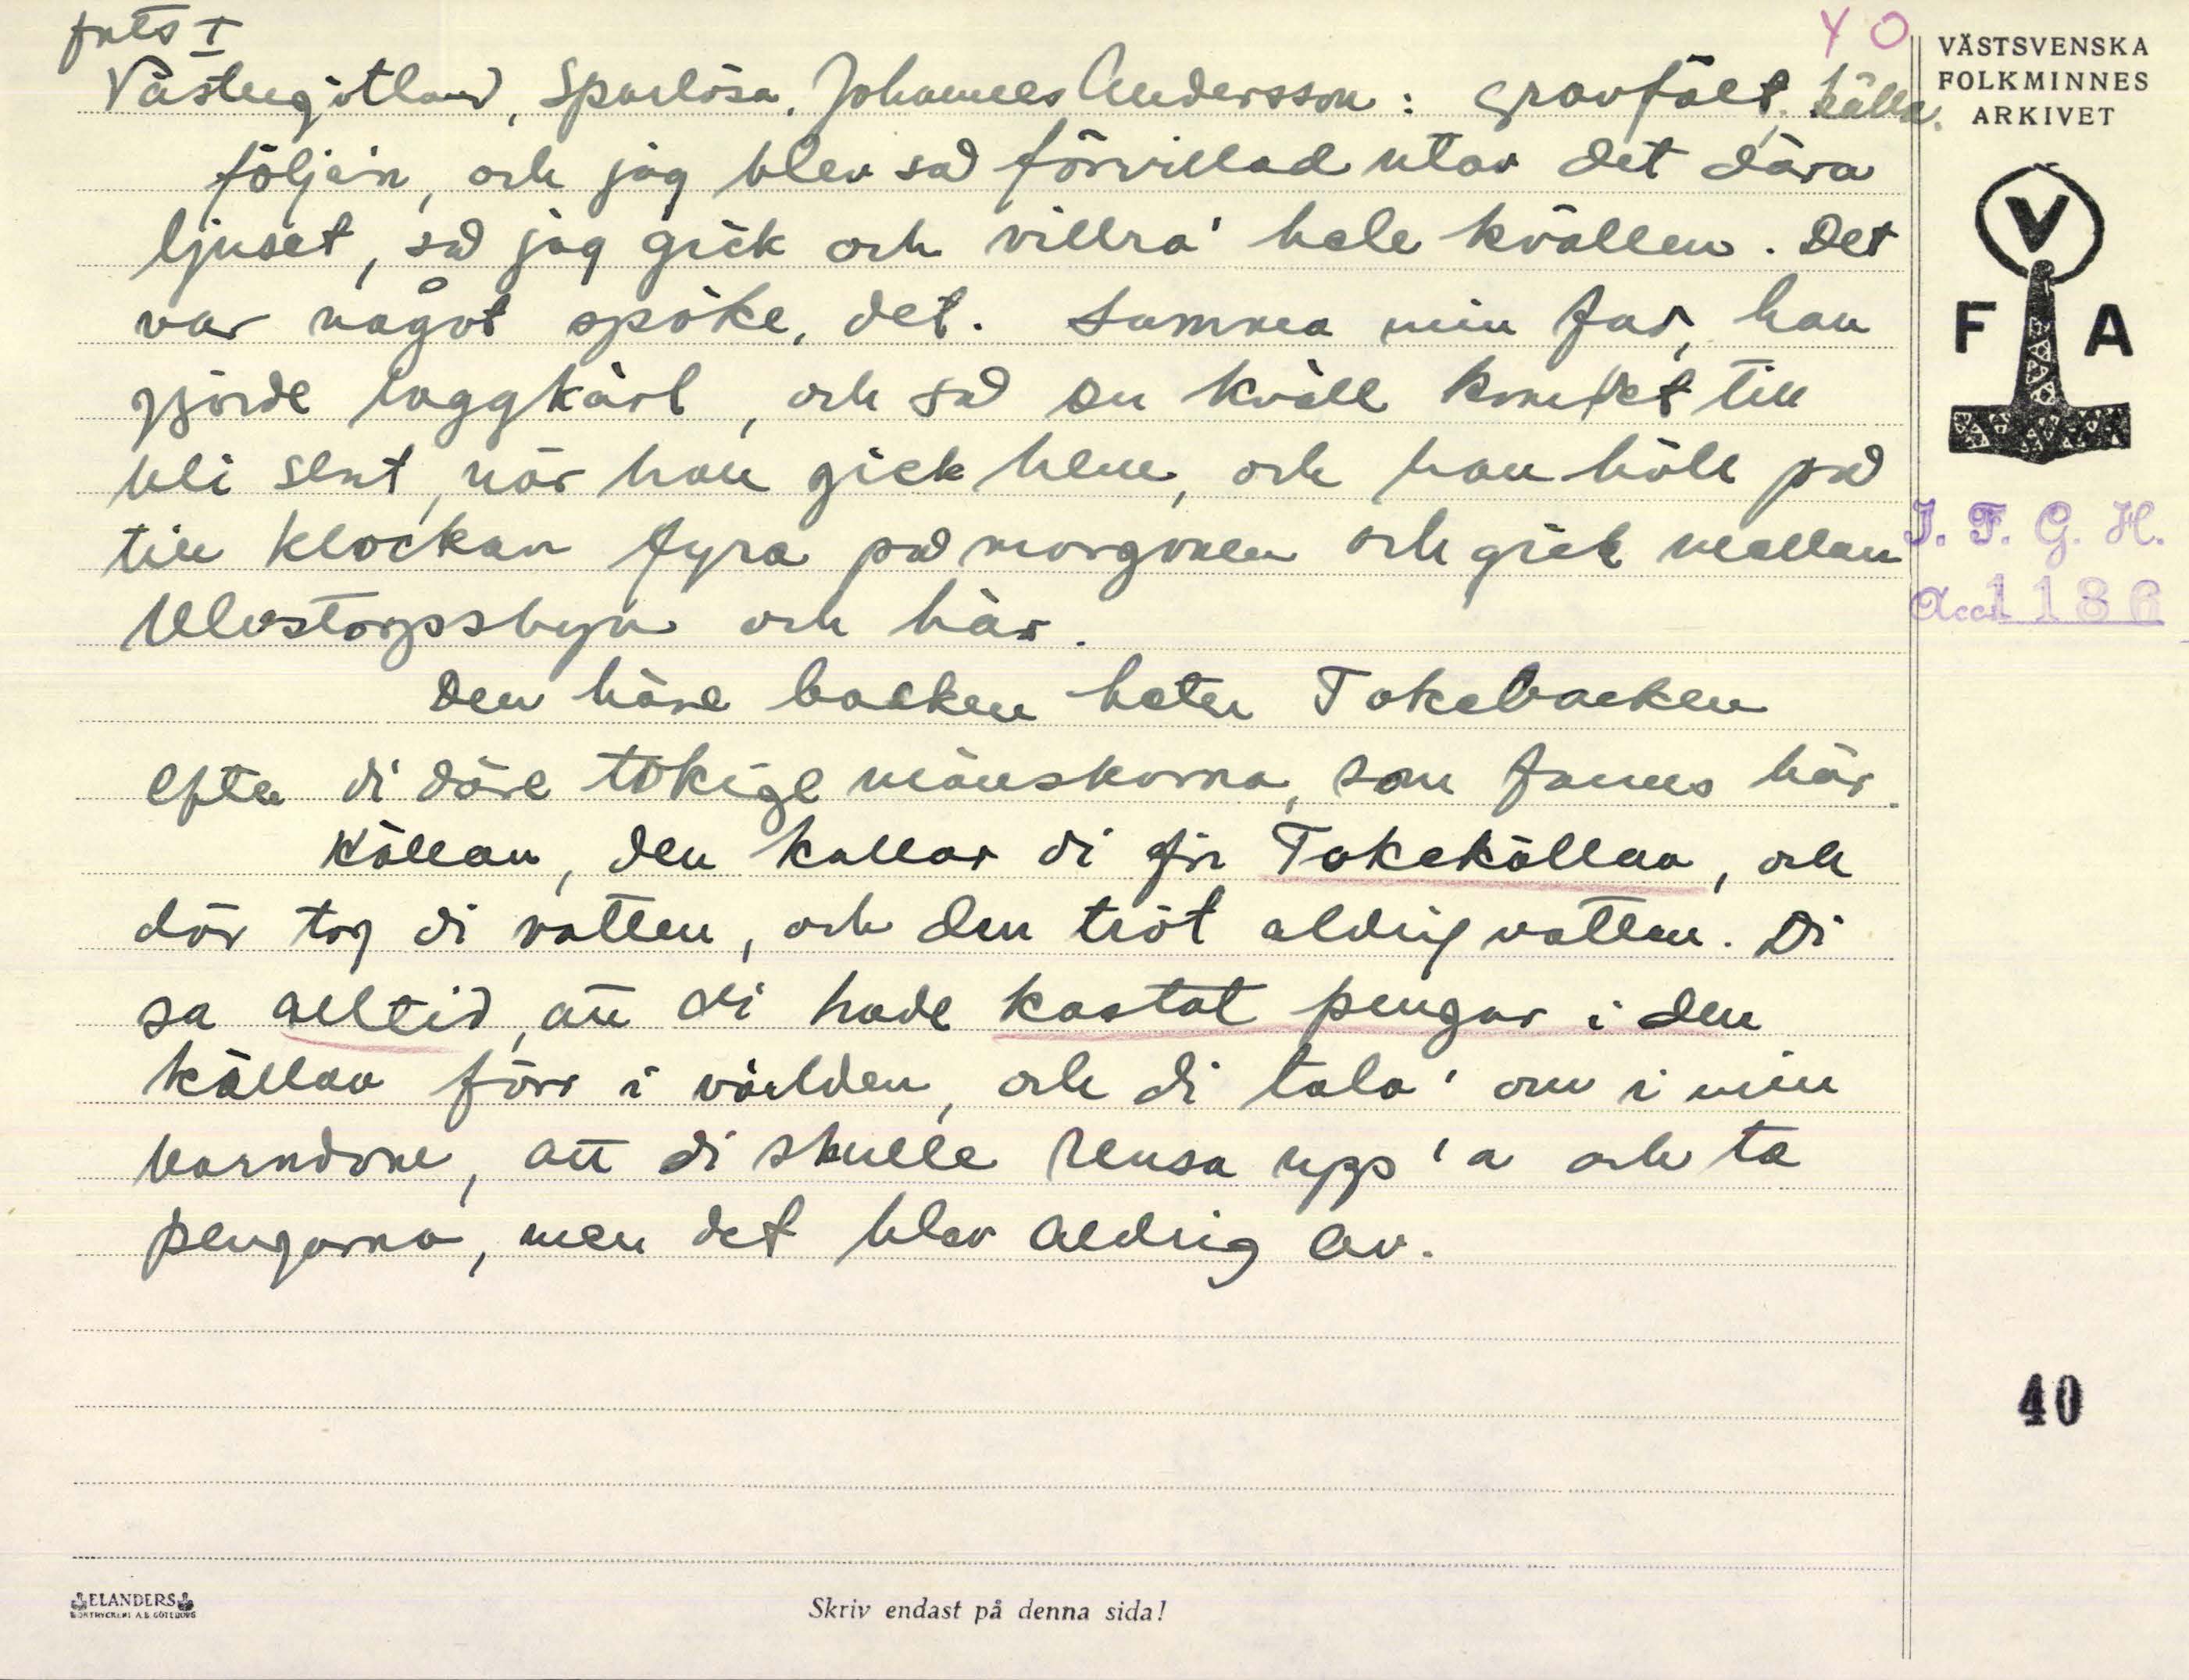 forts I
40
Västergötland, Sparlösa. Johannes Andersson: gravfält, källa.
följa'n, och jag blev så förvillad utav det dära
ljuset, så jag gick och villra' hele kvällen. Det
var något spöke, det. Samma min far, han
gjorde laggkärl, och så en kväll kom det till
bli sent, när han gick hem, och han höll på
till klockan fyra på morgonen och gick mellan
Ulvstorpsbyn och här.
Den häre backen heter Tokebacken
efter di däre tokige mänskorna, som fanns här.
Källan, den kallar di för Tokekällan, och
där tog di vatten, och den tröt aldrig vatten. Di
sa alltid, att di hade kastat pengar i den
källan förr i världen, och di tala' om i min
barndom, att di skulle rensa upp'a och ta
pengarna, men det blev aldrig av.
VÄSTSVENSKA
FOLKMINNES
ARKIVET
V
F A
I. F. G. H.
Acc. 1186
40
ELANDERS
BOKTRYCKERI A.B. GÖTEBORG
Skriv endast på denna sida!